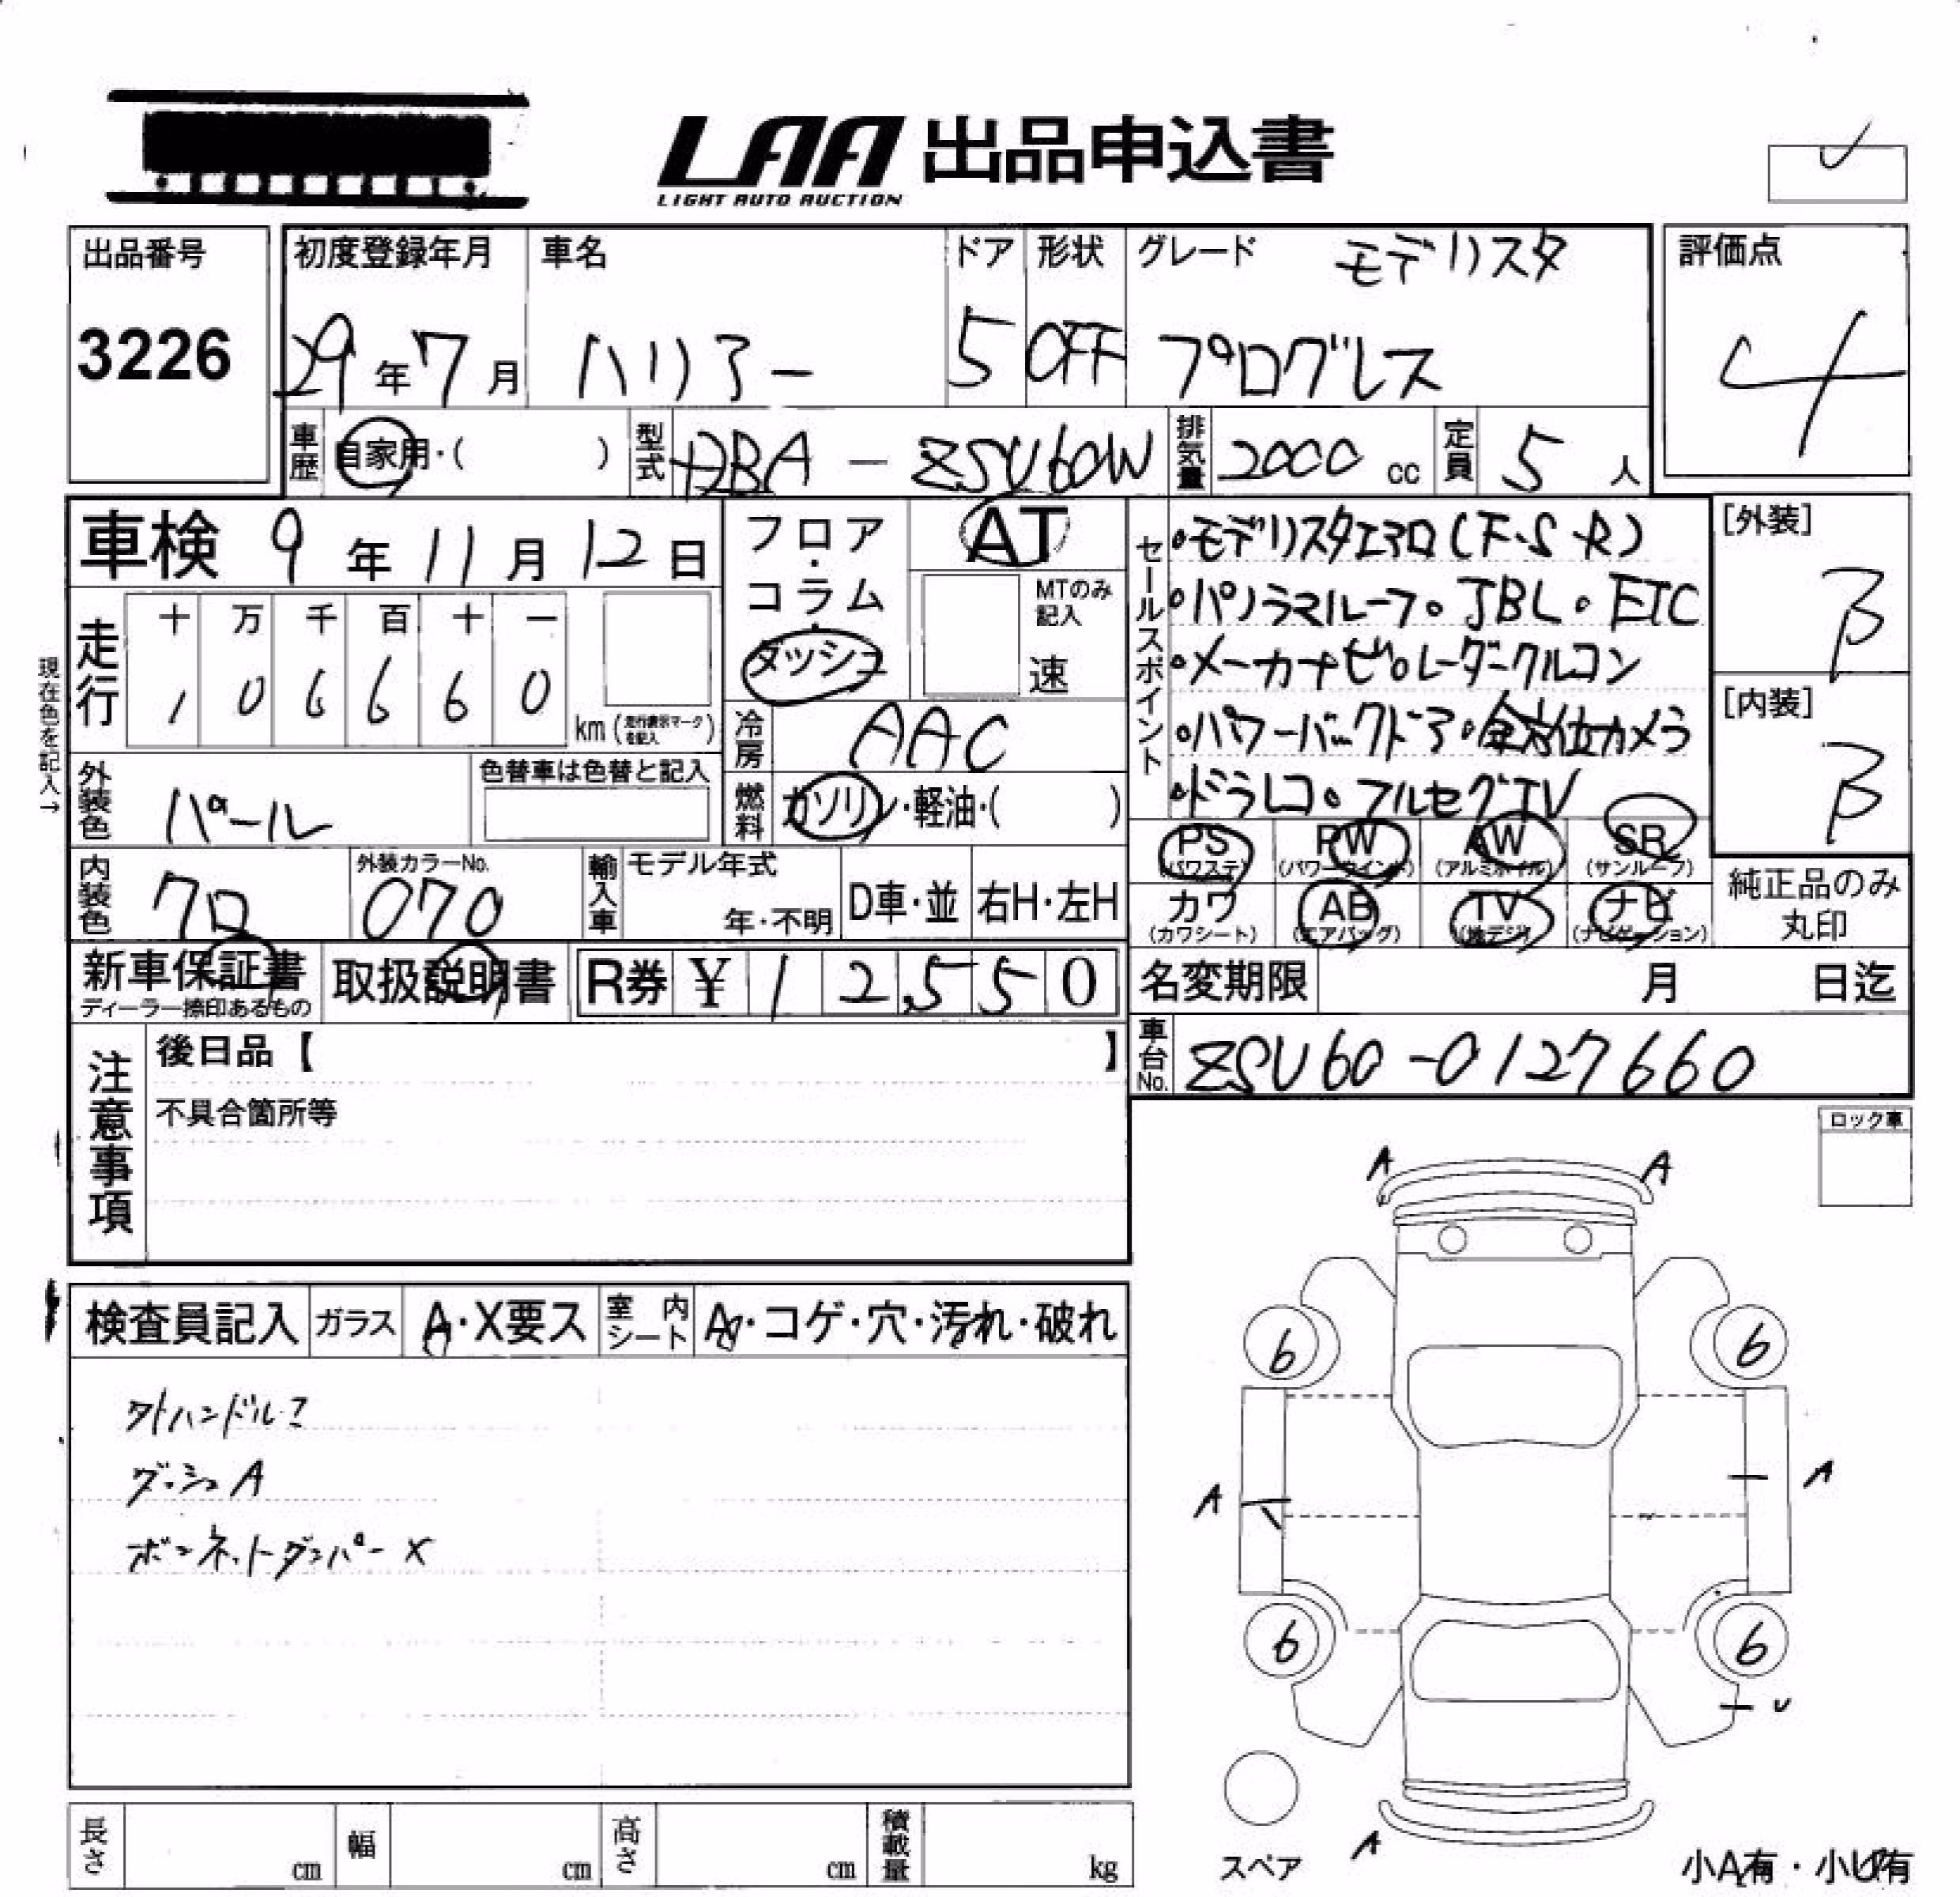 LAA 出品申込書
LIGHT AUTO AUCTION
出品番号
3226
初度登録年月
29年7月
車名
ハリアー
ドア
5
形状
OFF
グレード
モデリスタ
プログレス
評価点
4
車歴
自家用・( )
型式
DBA-ZSU60W
排気量
2000 cc
定員
5人
車検 9年11月12日
フロア・コラム・ダッシュ
AT
MTのみ記入
速
セールスポイント
・モデリスタエアロ(F・S・R)
・パノラマルーフ。JBL。ETC
・メーカナビ。レーダークルコン
・パワーバックドア・全方位カメラ
・ドラレコ。フルセグTV
[外装]
B
[内装]
B
現在色を記入→
走行
十 万 千 百 十 一
1 0 6 6 6 0
km(走行表示マークを記入)
冷房
AAC
外装色
パール
色替車は色替と記入
燃料
ガソリン・軽油・( )
PS
(パワステ)
PW
(パワーウインド)
AW
(アルミホイル)
SR
(サンルーフ)
カワ
(カワシート)
AB
(エアバッグ)
TV
(地デジ)
ナビ
(ナビゲーション)
純正品のみ
丸印
内装色
クロ
外装カラーNo.
070
輸入車
モデル年式
年・不明
D車・並
右H・左H
新車保証書
ディーラー捺印あるもの
取扱説明書
R券 ¥ 12,550
名変期限 月 日迄
車台No.
ZSU60-0127660
注意事項
後日品【 】
不具合箇所等
ロック車
検査員記入
ガラス
A・X要ス
室内シート
A・コゲ・穴・汚れ・破れ
ダッシュA
ボンネットダンパーX
A A
6 6
A A
6 6
A
スペア
小A有・小U有
長さ cm
幅 cm
高さ cm
積載量 kg